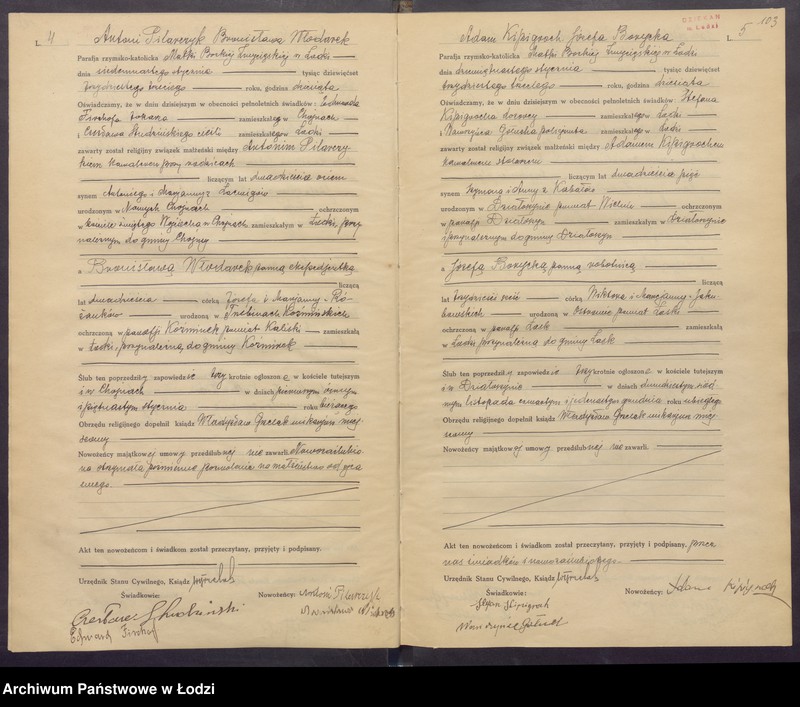 4
Antoni Pilarczyk Bronisława Włodarek
Parafja rzymsko-katolicka Matki Boskiej Zwycięskiej w Łodzi
dnia siedemnastego stycznia tysiąc dziewięćset
trzydziestego trzeciego roku, godzina dziesiąta
Oświadczamy, że w dniu dzisiejszym w obecności pełnoletnich świadków: Edwarda
Tischofa tokarza zamieszkałego w Chojnach
i Czesława Studzińskiego cieśli zamieszkałego w Łodzi
zawarty został religijny związek małżeński między Antonim Pilarczy-
kiem kawalerem przy rodzicach
liczącym lat dwadzieścia osiem
synem Antoniego i Marjanny z
urodzonym w Nowych Chojnach ochrzczonym
w kościele świętego Wojciecha w Chojnach zamieszkałym w Łodzi, przy
należnym do gminy Chojny
a Bronisławą Włodarek panną ekspedjentką
liczącą
lat dwadzieścia córką Józefa i Marjanny
urodzoną w Koźmińskich
ochrzczoną w parafji Koźminek powiat Kaliski zamieszkałą
w Łodzi, przynależną do gminy Koźminek
Ślub ten poprzedziły zapowiedzie trzy krotnie ogłoszone w kościele tutejszym
i w Chojnach w dniach pierwszym ósmym
i piętnastym stycznia roku bieżącego
Obrzędu religijnego dopełnił ksiądz Władysław wikarjusz miej
scowy
Nowożeńcy majątkowej umowy przedślubnej nie zawarli. Nowozaślubio
na otrzymała piśmienne pozwolenie na małżeństwo od ojca
swego.
Akt ten nowożeńcom i świadkom został przeczytany, przyjęty i podpisany.
Urzędnik Stanu Cywilnego, Ksiądz
Świadkowie:
Nowożeńcy: Antoni Pilarczyk
Czesław Studziński
Edward Tischof
DZIEKAN
w Łodzi
103
5
Adam Józefa Borzęcka
Parafja rzymsko-katolicka Matki Boskiej Zwycięskiej w Łodzi
dnia dziewiętnastego stycznia tysiąc dziewięćset
trzydziestego trzeciego roku, godzina dziesiąta
Oświadczamy, że w dniu dzisiejszym w obecności pełnoletnich świadków: Stefana
dozorcy zamieszkałego w Łodzi
i Wawrzyńca zamieszkałego w Łodzi
zawarty został religijny związek małżeński między Adamem
kawalerem stolarzem
liczącym lat dwadzieścia pięć
synem Szymona i Anny z
urodzonym w Działoszynie powiat Wieluń ochrzczonym
w parafji Działoszyn zamieszkałym w Działoszynie
i przynależnym do gminy Działoszyn
a Józefą Borzęcką panną robotnicą
liczącą
lat córką Wiktora i Marcjanny
urodzoną w powiat Łaski
ochrzczoną w parafji Łask zamieszkałą
w Łodzi przynależną do gminy Łask
Ślub ten poprzedziły zapowiedzie trzy krotnie ogłoszone w kościele tutejszym
i w Działoszynie w dniach dwudziestym siód-
mym listopada czwartym i jedenastym grudnia roku ubiegłego
Obrzędu religijnego dopełnił ksiądz Władysław wikarjusz miej
scowy
Nowożeńcy majątkowej umowy przedślubnej nie zawarli.
Akt ten nowożeńcom i świadkom został przeczytany, przyjęty i podpisany, przez
nas świadków i nowozaślubionego.
Urzędnik Stanu Cywilnego, Ksiądz
Świadkowie:
Nowożeńcy: Adam
Archiwum Państwowe w Łodzi